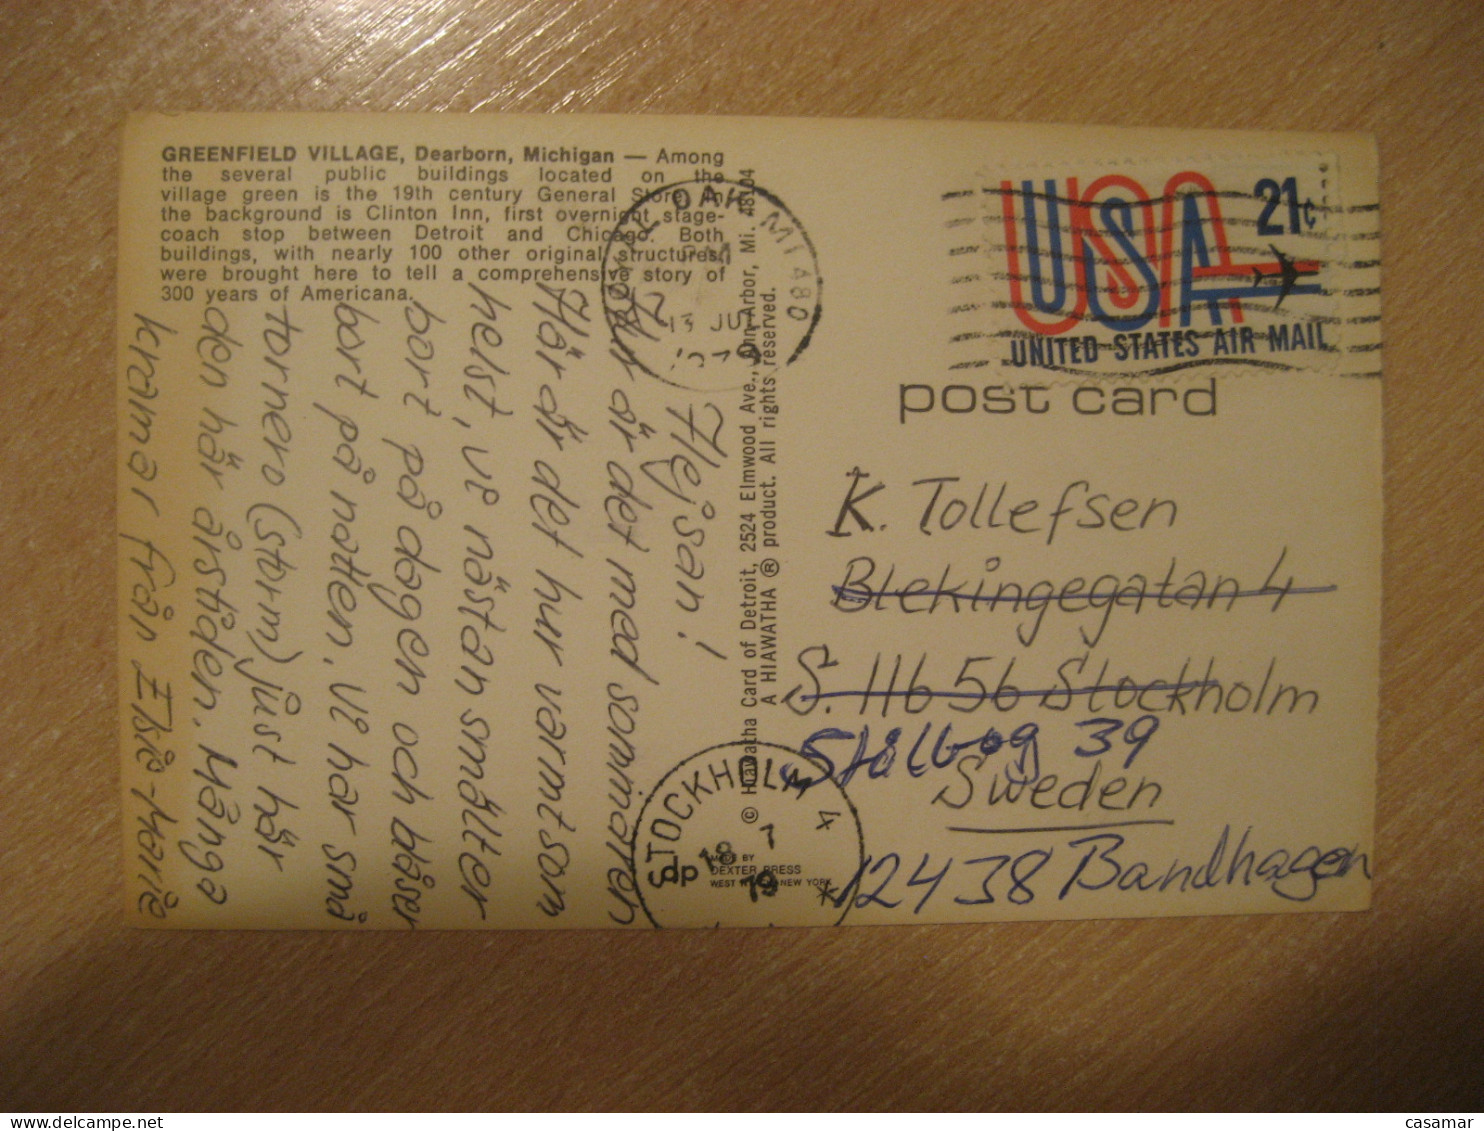 GREENFIELD VILLAGE, Dearborn, Michigan — Among
the several public buildings located on the
village green is the 19th century General Store. In
the background is Clinton Inn, first overnight stage-
coach stop between Detroit and Chicago. Both
buildings, with nearly 100 other original structures,
were brought here to tell a comprehensive story of
300 years of Americana.
Hejsan!
Hur är det med sommaren
Här är det hur varmt som
helst, vi nästan smälter
bort på dagen och blåser
bort på natten. Vi har små
tornero (storm) just här
den här årstiden. Många
kramar från Elsie-Marie
© Hiawatha Card of Detroit, 2524 Elmwood Ave., Ann Arbor, Mi. 48104
A HIAWATHA ® product. All rights reserved.
MADE BY
DEXTER PRESS
WEST NEW YORK
OAK MI 480
13 JUL
STOCKHOLM 4
dp 18 7
79
USA 21¢
UNITED STATES AIR MAIL
post card
K. Tollefsen
Blekingegatan 4
S. 116 56 Stockholm
Stålbog 39
Sweden
12438 Bandhagen
casamar
www.delcampe.net